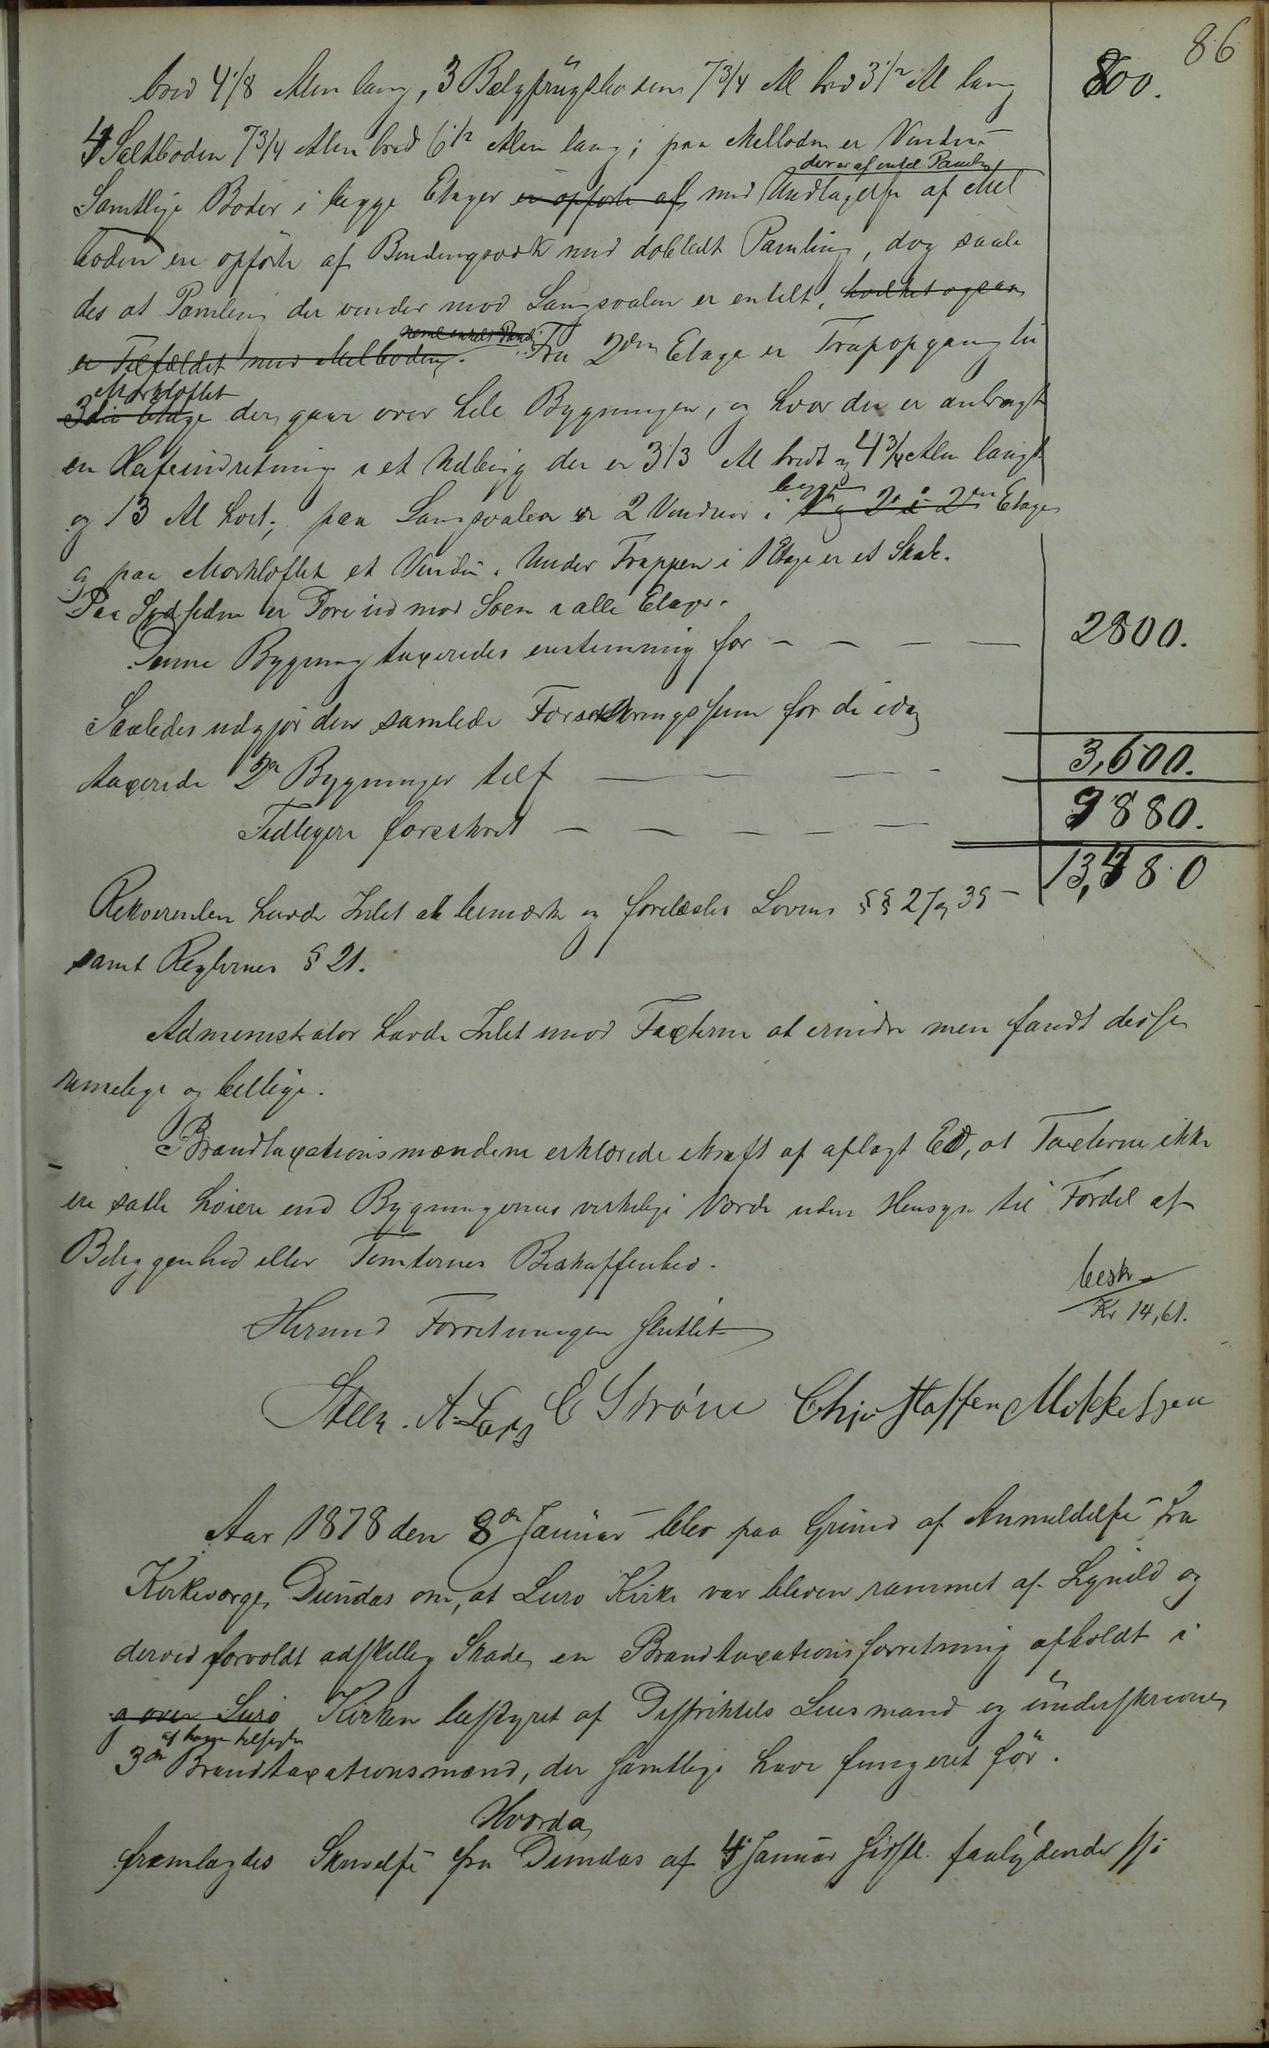 86
bred 4 1/8 Alen lang, 3 Bælgfrügtboden 7 3/4 Al bred 3 1/2 Al lang 800.
4 Saltboden 7 3/4 Alen bred 6 1/2 Alen lang; paa Melboden er Vindu
der er af enkel Paneling
Samtlige Boder i begge Etager er opførte af med Undtagelse af Mel
boden ere opförte af Bindingsverk med dobbelt Paneling, dog saale
des at Paneling der vender mod Langsvalen er enkelt, hvilket ogsaa
er Tilfældet med Melboden. Fra 2den Etage er Trapopgang til
Mørkloftet
3die Etage der gaar over hele Bygningen, og hvor der er anbragt
en Heiseindretning i et Udbygg der er 3 1/3 Al bredt og 4 3/4 Alen langt
begge
og 13 Al høit; paa Langsvalen er 2 Vinduer i 1 og 2 i 2den Etage
og paa Mørkloftet et Vindu. Under Trappen i 1 Etage er et Skab.
Paa Sydsiden er Port ud mod Søen i alle Etager.
Denne Bygning taxeredes enstemmig for - - - - 2800.
Saaledes udgjør den samlede Forsikringssum for de idag
taxerede 2de Bygninger tils - - - 3,600.
Tidligere forsikret - - - - - 9880.
13,480
Rekvirenten havde Intet at bemærke og forelæstes Lovens §§ 27 og 39 -
samt Reglernes § 21.
Administrator havde Intet imod Taxterne at erindre men fandt disse
rimelige og billige.
Brandtaxationsmændene erklærede ikraft af aflagt Ed, at Taxterne ikke
ere satte høiere end Bygningernes virkelige Værdi uden Hensyn til Fordel af
Beliggenhed eller Tomternes Beskaffenhed.
beskr
Kr 14,61.
Hermed Forretningen sluttet
Steen. A. Lars E Strøm Christoffer Mikkelsen
Aar 1878 den 8de Januar blev paa Grund af Anmeldelse fra
Kirkeverge Dundas om, at Lurø Kirke var bleven rammet af Lynild og
derved forvoldt adskellig Skade, en Brandtaxationsforretning afholdt i
og over Lurö Kirken bestyret af Distriktets Lensmand og underskrevne
af ham tilsagte
3de Brandtaxationsmænd, der samtlige have fungeret för.
Hvorda
fremlagdes Skrivelse fra Dundas af 4 Januar sidstl. saalydende ///: